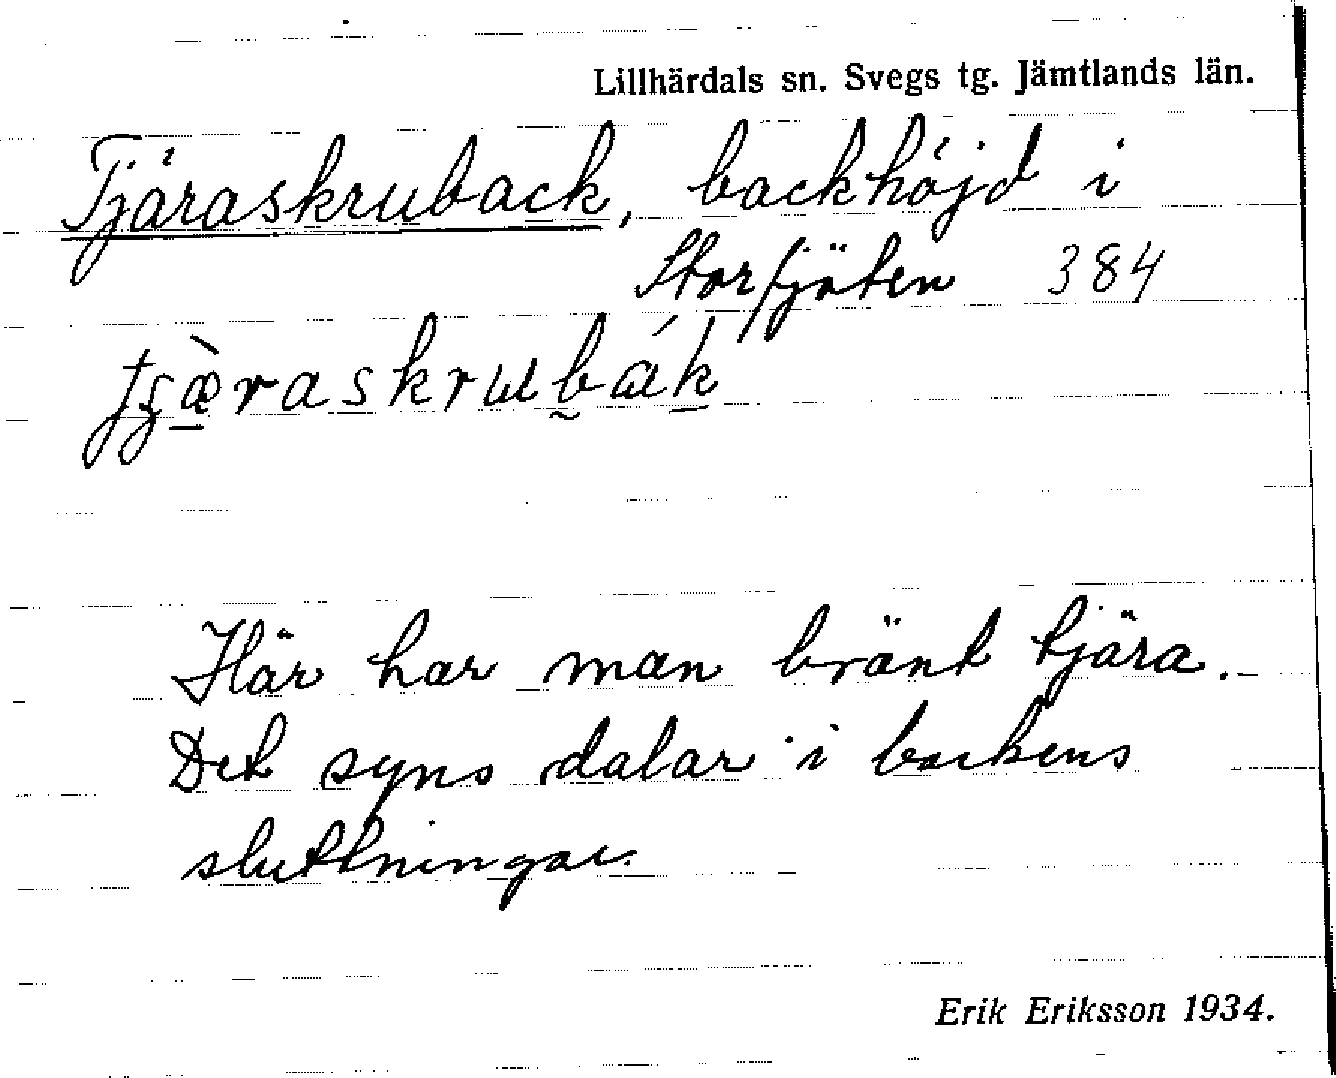 Lillhärdals sn. Svegs tg. Jämtlands län.
Tjäraskruback, backhöjd i
Storfjäten 384
Här har man bränt tjära.
Det syns dalar i backens
sluttningar.
Erik Eriksson 1934.